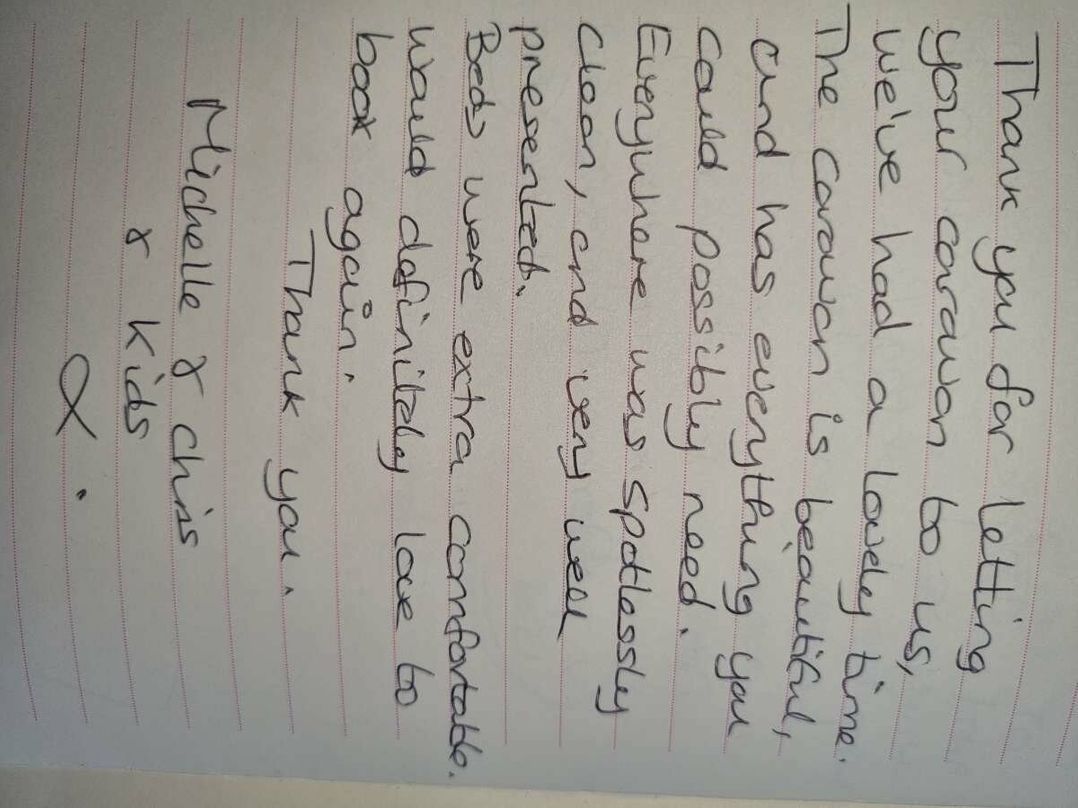 Thank you for letting
your caravan to us,
we've had a lovely time.
The caravan is beautiful,
and has everything you
could possibly need.
Everywhere was spotlessly
clean, and very well
presented.
Beds were extra comfortable.
would definitely love to
book again.
Thank you.
Michelle & Chris
& Kids
X.